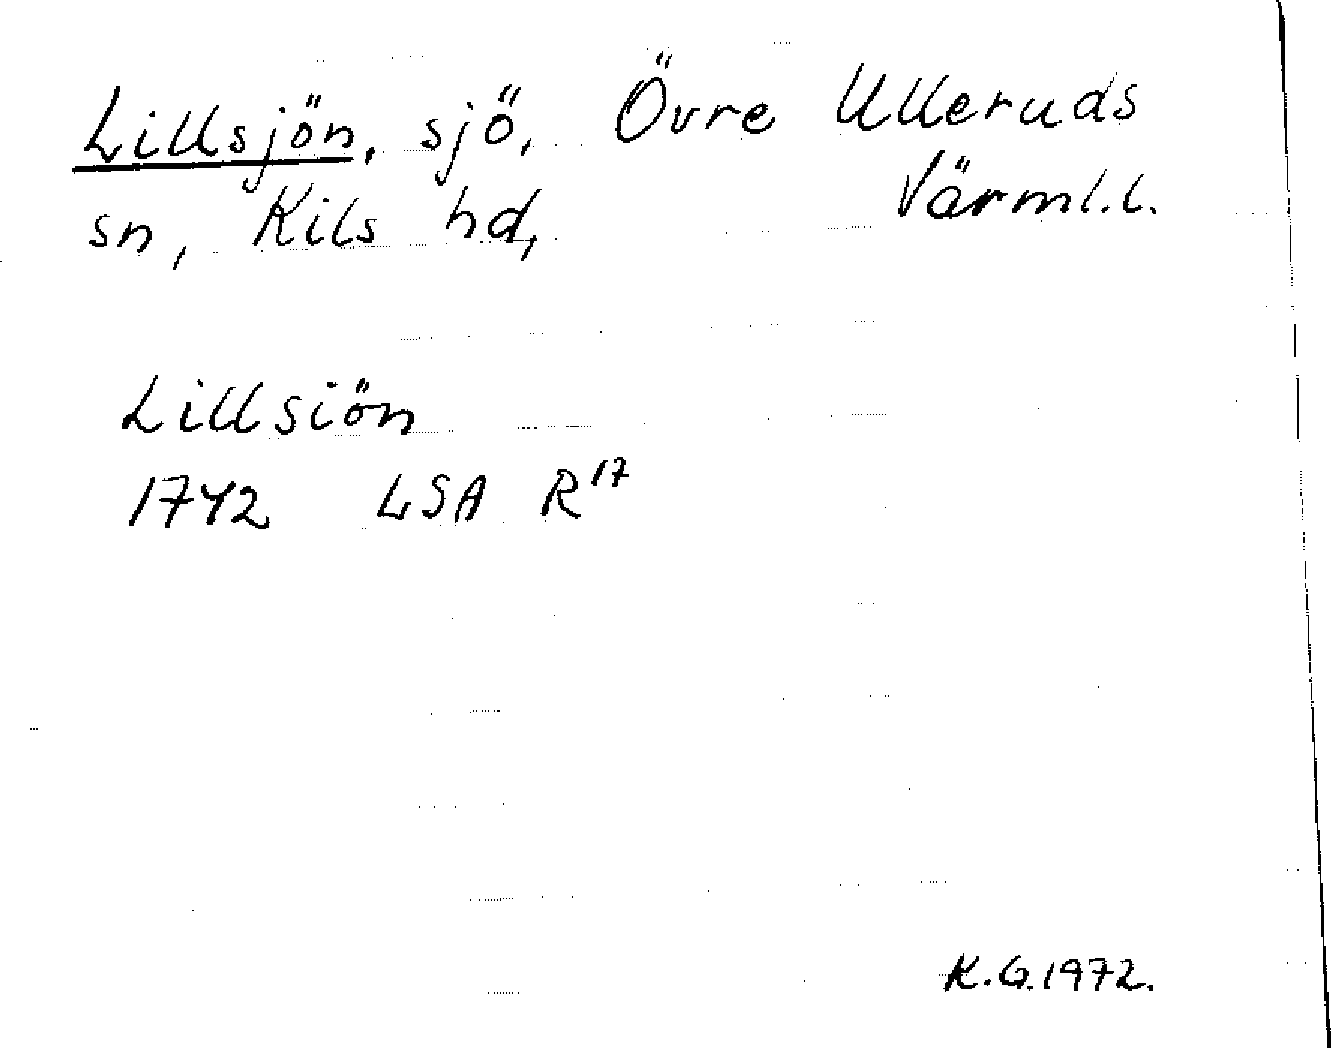 Lillsjön, sjö, Övre Ulleruds
sn, Kils hd, Värml.l.
Lillsiön
1742 LSA R17
K.G.1972.